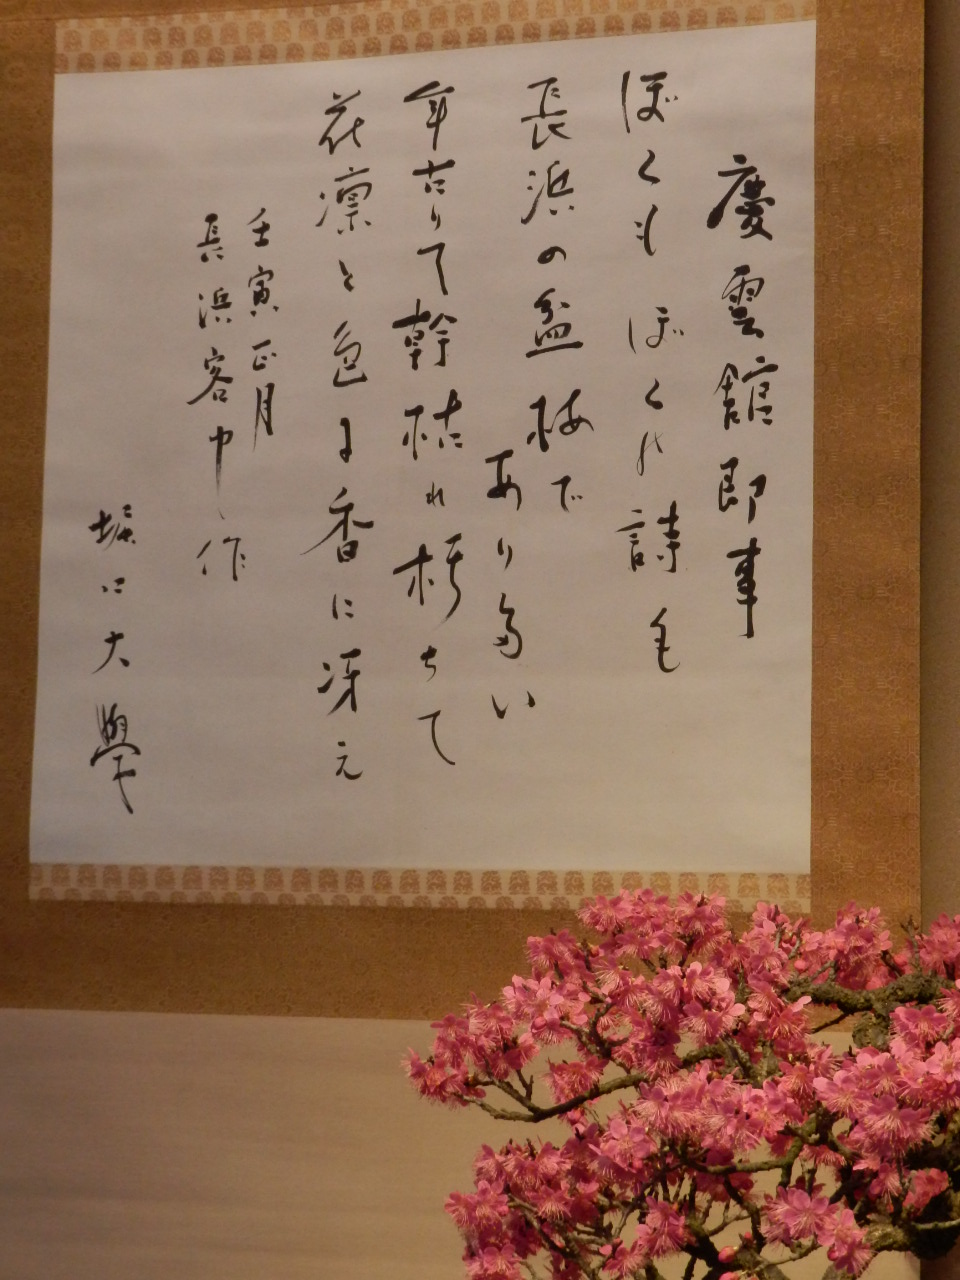 慶雲館即事
ぼくもぼくの詩も
長浜の盆梅で
あり度い
年古りて幹枯れ朽ちて
花凛と色に香に冴え
壬寅正月
長浜客中作
堀口大學